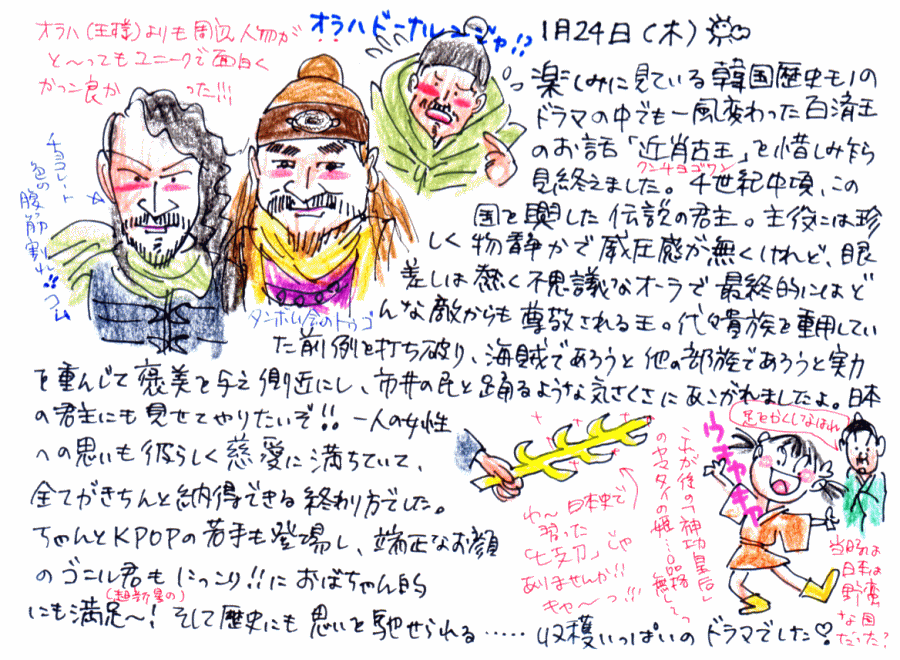 オラハ(王様)よりも周辺人物が
と〜ってもユニークで面白く
かっこ良かったっ!!!
オラハドーナルンジャ!?
1月24日(木)
楽しみに見ている韓国歴史モノの
ドラマの中でも一風変わった百済王
のお話「近肖古王」を惜しみ乍ら
クンチョゴワン
見終えました。4世紀中頃、この
国を興した伝説の君主。主役には珍
しく物静かで威圧感が無くけれど、眼
差しは熱く不思議なオーラで最終的にはど
んな敵からも尊敬される王。代々貴族を重用してい
た前例を打ち破り、海賊であろうと他の部族であろうと実力
を重んじて褒美を与え側近にし、市井の民と踊るような気さくさにあこがれましたよ。日本
の君主にも見せてやりたいぞ!!一人の女性
への思いも彼らしく慈愛に満ちていて、
全てがきちんと納得できる終わり方でした。
ちゃんとKPOPの若手も登場し、端正なお顔
のゴニル君もにっこり!!におばちゃん的
(超新星の)
にも満足〜!そして歴史にも思いを馳せられる……収穫いっぱいのドラマでした♡
チョコレート
色の
腹筋
割れ!!
タンボム会のトゥゴ
わ〜日本史で
習った
「七支刀」じゃ
ありませんか!!
キャ〜っ!!!
これが後の「神功皇后」
のヤマタイの姫…品格無しっ
ウキャキャ
足をかくしなはれ
当時は
日本は
野蛮
な国
だった?